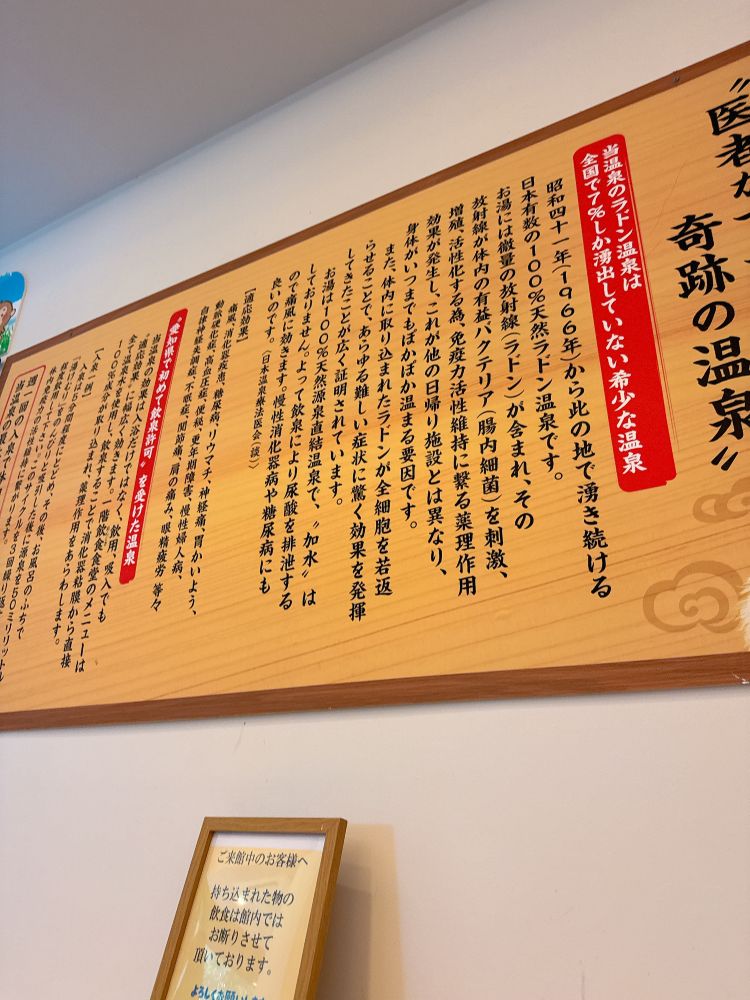 〝医者が
奇跡の温泉〟
当温泉のラドン温泉は
全国で7%しか湧出していない希少な温泉
昭和四十一年(1966年)から此の地で湧き続ける
日本有数の100%天然ラドン温泉です。
お湯には微量の放射線(ラドン)が含まれ、その
放射線が体内の有益バクテリア(腸内細菌)を刺激、
増殖、活性化する為、免疫力活性維持に繋る薬理作用
効果が発生し、これが他の日帰り施設とは異なり、
身体がいつまでもぽかぽか温まる要因です。
また、体内に取り込まれたラドンが全細胞を若返
らせることで、あらゆる難しい症状に驚く効果を発揮
してきたことが広く証明されています。
お湯は100%天然源泉直結温泉で、〝加水〟は
しておりません。よって飲泉により尿酸を排泄する
ので痛風に効きます。慢性消化器病や糖尿病にも
良いのです。(日本温泉療法医会(談))
【適応効果】
痛風、消化器疾患、糖尿病、リウマチ、神経痛、胃かいよう、
動脈硬化症、高血圧症、便秘、更年期障害、慢性婦人病、
自律神経失調症、不眠症、関節痛、肩の痛み、眼精疲労 等々
〝愛知県で初めて飲泉許可〟を受けた温泉
当温泉の効果は入浴だけではなく、飲用、吸入でも
〝適応効果〟に幅広く効きます。一階飲食食堂のメニューは
全て温泉水を使用し、飲泉することで消化器粘膜から直接
100%成分が取り込まれ、薬理作用をあらわします。
【入泉一例】
一週間の入泉で
当温泉の
ご来館中のお客様へ
持ち込まれた物の
飲食は館内では
お断りさせて
頂いております。
よろしくお願いします